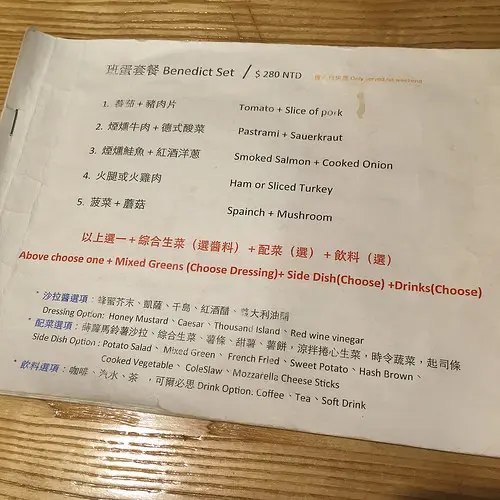 班蛋套餐 Benedict Set / $ 280 NTD Only served at weekend
1. 蕃茄 + 豬肉片 Tomato + Slice of pork
2. 煙燻牛肉 + 德式酸菜 Pastrami + Sauerkraut
3. 煙燻鮭魚 + 紅酒洋蔥 Smoked Salmon + Cooked Onion
4. 火腿或火雞肉 Ham or Sliced Turkey
5. 菠菜 + 蘑菇 Spainch + Mushroom
以上選一 + 綜合生菜（選醬料）+ 配菜（選）+ 飲料（選）
Above choose one + Mixed Greens (Choose Dressing)+ Side Dish(Choose) +Drinks(Choose)
* 沙拉醬選項：蜂蜜芥末、凱薩、千島、紅酒醋、義大利油醋
Dressing Option: Honey Mustard、Caesar、Thousand Island、Red wine vinegar
* 配菜選項：蒔蘿馬鈴薯沙拉、綜合生菜、薯條、甜薯、薯餅，涼拌捲心生菜，時令蔬菜，起司條
Side Dish Option : Potato Salad、Mixed Green、French Fried、Sweet Potato、Hash Brown、
Cooked Vegetable、ColeSlaw、Mozzarella Cheese Sticks
* 飲料選項：咖啡、汽水、茶，可爾必思 Drink Option: Coffee、Tea、Soft Drink